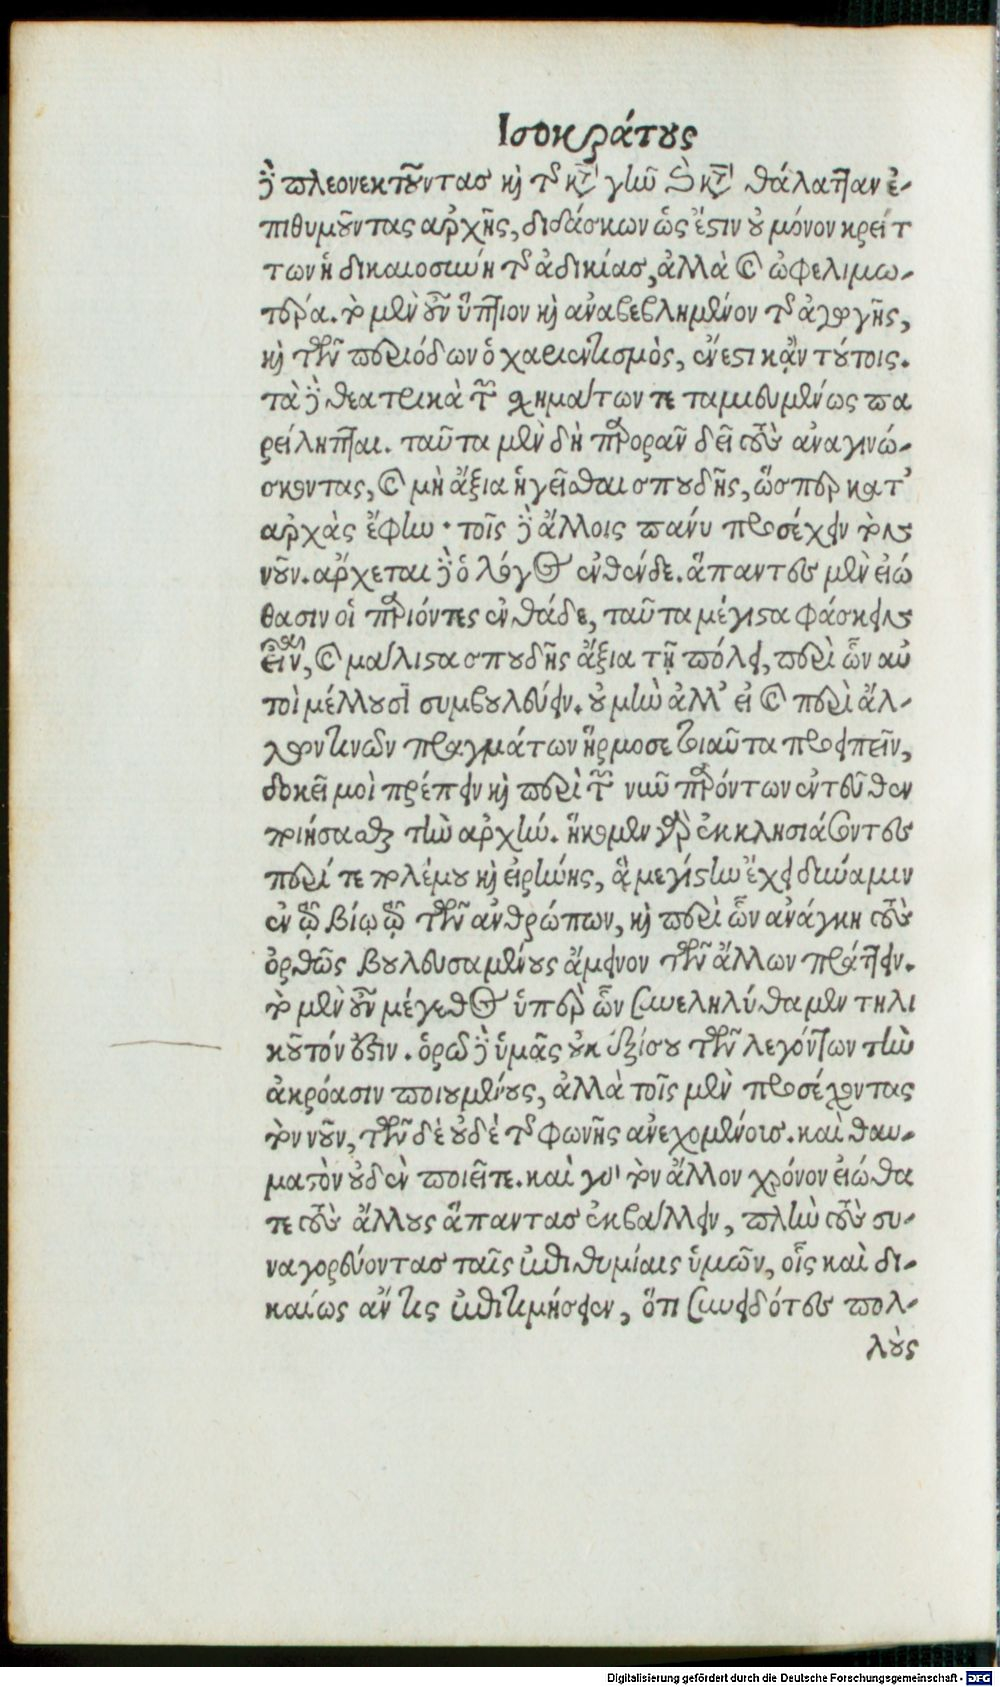 Ισοκράτους
δὲ πλεονεκτοῦντας καὶ τῆς κατὰ γῆν καὶ κατὰ θάλατταν ἐ-
πιθυμοῦντας ἀρχῆς, διδάσκων ὡς ἔστιν οὐ μόνον κρείτ
των ἡ δικαιοσύνη τῆς ἀδικίας, ἀλλὰ καὶ ὠφελιμω-
τέρα. τὸ μὲν οὖν ὕπτιον καὶ ἀναβεβλημένον τῆς ἀπαγγελίας,
καὶ τῶν περιόδων ὁ χαριεντισμὸς, ἔνεστι κἀν τούτοις.
τὰ δὲ θεατρικὰ τῶν σχημάτων τε ταμιευμένως πα
ρείληπται. ταῦτα μὲν δὴ παρορᾶν δεῖ τοὺς ἀναγινώ-
σκοντας, καὶ μὴ ἄξια ἡγεῖσθαι σπουδῆς, ὥσπερ κατ'
ἀρχὰς ἔφην· τοῖς δὲ ἄλλοις πάνυ προσέχειν τὸν
νοῦν. ἄρχεται δὲ ὁ λόγος ἐνθένδε. ἅπαντες μὲν εἰώ
θασιν οἱ παριόντες ἐνθάδε, ταῦτα μέγιστα φάσκειν
εἶναι, καὶ μάλιστα σπουδῆς ἄξια τῇ πόλει, περὶ ὧν αὐ
τοὶ μέλλουσι συμβουλεύειν. οὐ μὴν ἀλλ' εἰ καὶ περὶ ἄλ-
λων τινῶν πραγμάτων ἥρμοσε τοιαῦτα προειπεῖν,
δοκεῖ μοι πρέπειν καὶ περὶ τῶν νῦν παρόντων ἐντεῦθεν
ποιήσασθαι τὴν ἀρχήν. ἥκομεν γὰρ ἐκκλησιάσοντες
περί τε πολέμου καὶ εἰρήνης, ἃ μεγίστην ἔχει δύναμιν
ἐν τῷ βίῳ τῷ τῶν ἀνθρώπων, καὶ περὶ ὧν ἀνάγκη τοὺς
ὀρθῶς βουλευσαμένους ἄμεινον τῶν ἄλλων πράττειν.
τὸ μὲν οὖν μέγεθος ὑπὲρ ὧν συνεληλύθαμεν τηλι
κοῦτόν ἐστιν. ὁρῶ δὲ ὑμᾶς οὐκ ἐξίσου τῶν λεγόντων τὴν
ἀκρόασιν ποιουμένους, ἀλλὰ τοῖς μὲν προσέχοντας
τὸν νοῦν, τῶν δὲ οὐδὲ τῆς φωνῆς ἀνεχομένοις. καὶ θαυ-
μαστὸν οὐδὲν ποιεῖτε. καὶ γὰρ τὸν ἄλλον χρόνον εἰώθα
τε τοὺς ἄλλους ἅπαντας ἐκβάλλειν, πλὴν τοὺς συ-
ναγορεύοντας ταῖς ἐπιθυμίαις ὑμῶν, οἷς καὶ δι-
καίως ἄν τις ἐπιτιμήσειεν, ὅτι συνειδότες πολ-
λοὺς
Digitalisierung gefördert durch die Deutsche Forschungsgemeinschaft - DFG